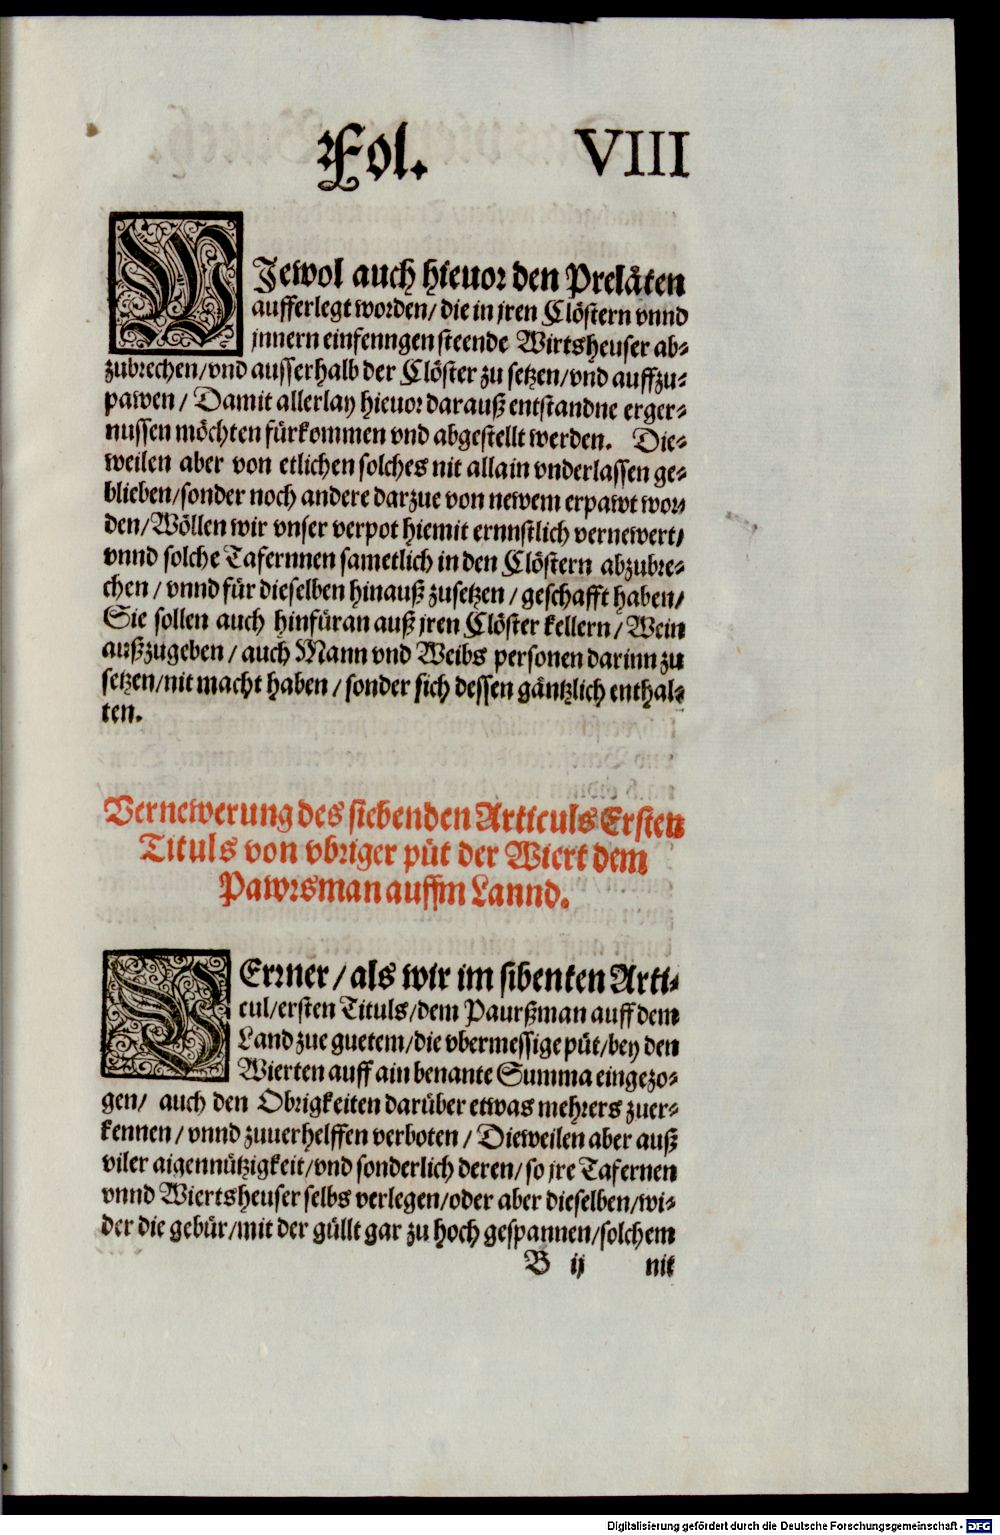 Fol. VIII
WJewol auch hieuor den Preläten
aufferlegt worden/ die in jren Clöstern vnnd
jnnern einfenngen steende Wirtsheuser ab-
zubrechen/vnd ausserhalb der Clöster zu setzen/vnd auffzu-
pawen / Damit allerlay hieuor darauß entstandne erger-
nussen möchten fürkommen vnd abgestellt werden. Die-
weilen aber von etlichen solches nit allain vnderlassen ge-
blieben/sonder noch andere darzue von newem erpawt wor-
den/Wöllen wir vnser verpot hiemit ernnstlich vernewert/
vnnd solche Tafernnen sametlich in den Clöstern abzubre-
chen / vnnd für dieselben hinauß zusetzen / geschafft haben/
Sie sollen auch hinfüran auß jren Clöster kellern / Wein
außzugeben / auch Mann vnd Weibs personen darinn zu
setzen/nit macht haben / sonder sich dessen gäntzlich enthal-
ten.
Vernewerung des siebenden Articuls Ersten
Tituls von vbriger püt der Wiert dem
Pawrsman auffm Lannd.
FErrner / als wir im sibenten Arti-
cul/ersten Tituls/dem Paurßman auff dem
Land zue guetem/die vbermessige püt/bey den
Wierten auff ain benante Summa eingezo-
gen/ auch den Obrigkeiten darüber etwas mehrers zuer-
kennen / vnnd zuuerhelffen verboten / Dieweilen aber auß
viler aigennützigkeit/vnd sonderlich deren/ so jre Tafernen
vnnd Wiertsheuser selbs verlegen/oder aber dieselben/wi-
der die gebür/mit der güllt gar zu hoch gespannen/solchem
B ij nit
Digitalisierung gefördert durch die Deutsche Forschungsgemeinschaft - DFG